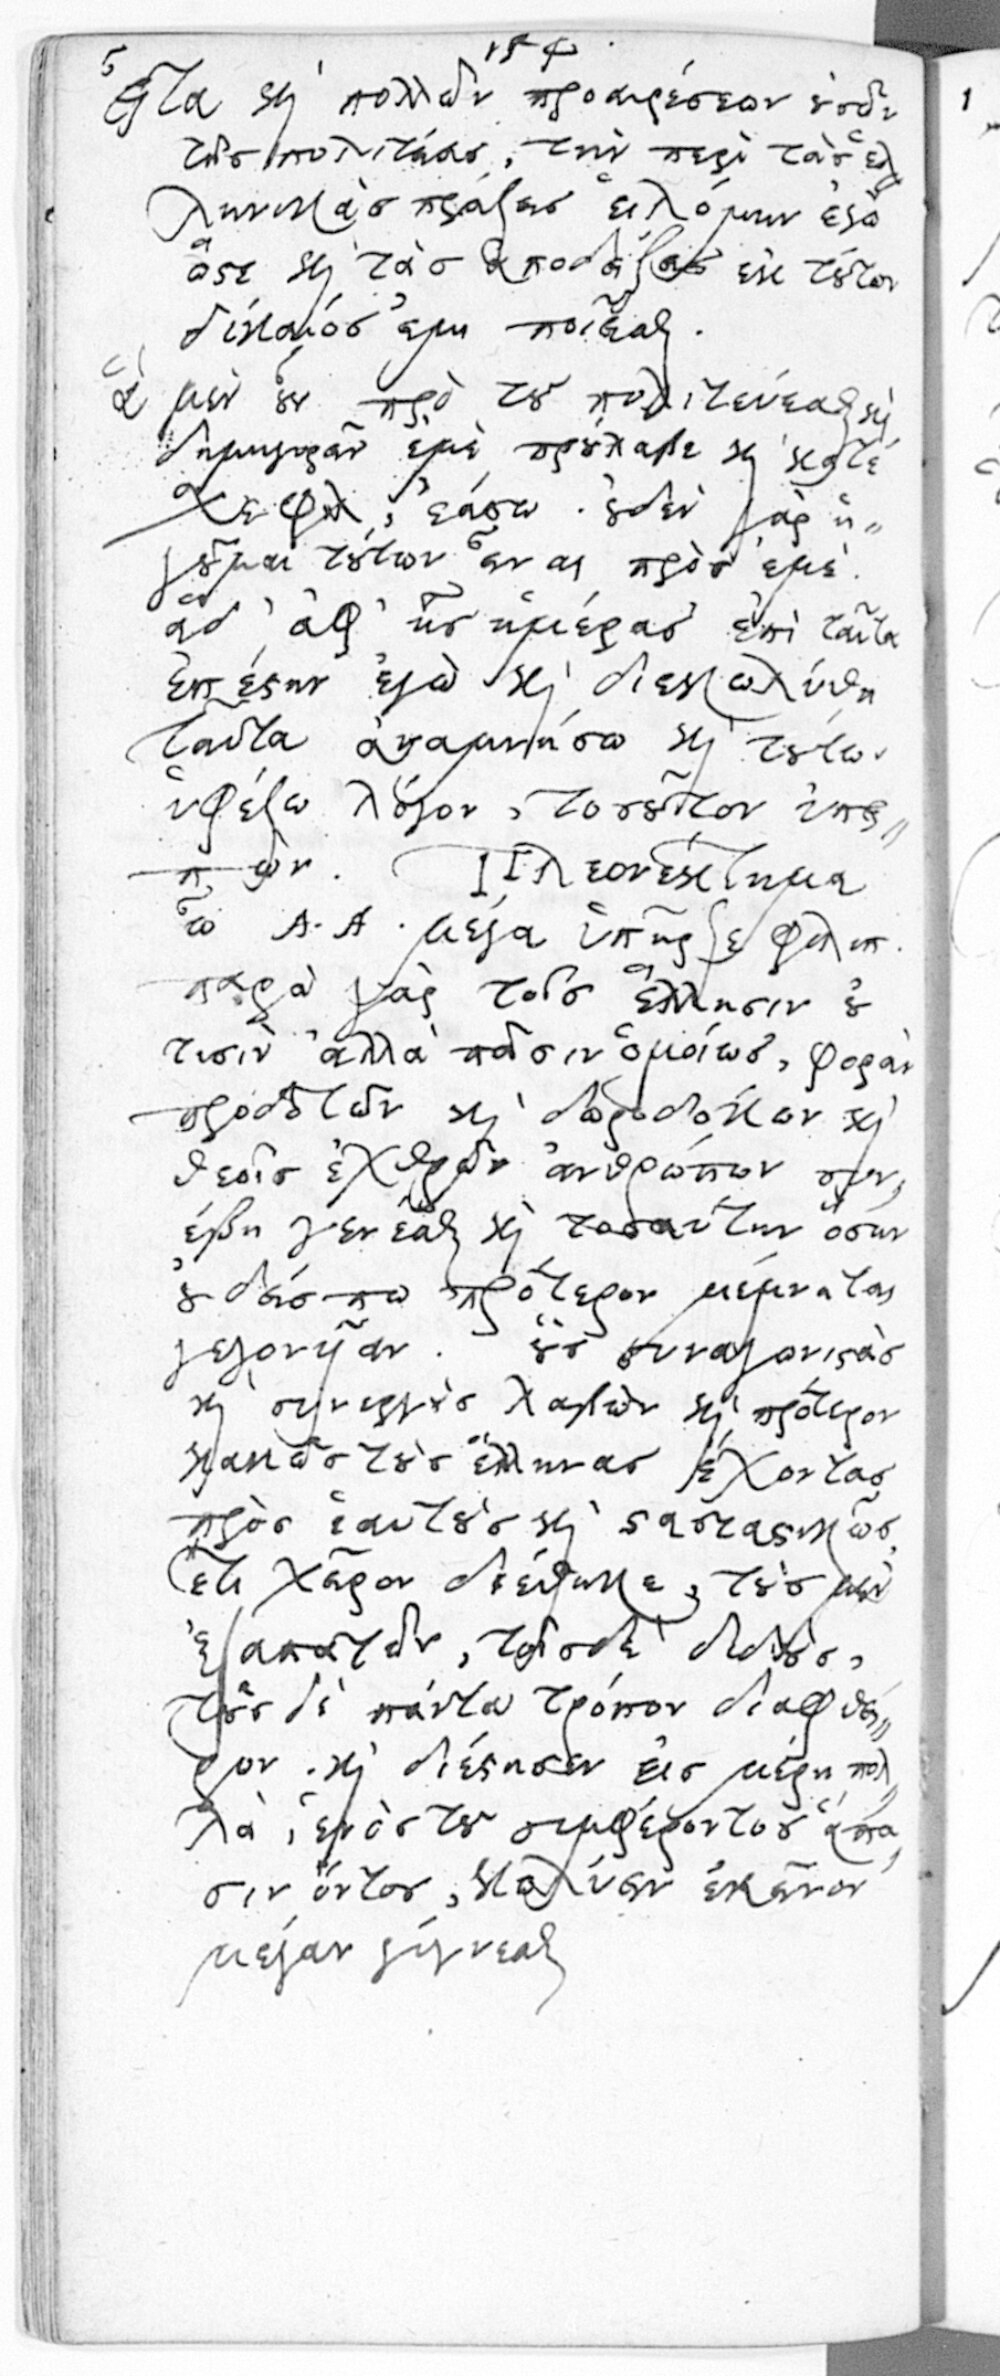 Εἶτα καὶ πολλῶν προαιρέσεων οὐσῶν
τῆς πολιτείας, τὴν περὶ τὰς ἑλ
ληνικὰς πράξεις εἱλόμην ἐγὼ
ὥστε καὶ τὰς ἀποδείξεις ἐκ τούτων
δίκαιός εἰμι ποιεῖσθαι.
ἃ μὲν οὖν πρὸ τοῦ πολιτεύεσθαι καὶ
δημηγορεῖν ἐμὲ προύλαβε καὶ κατέ
σχε φίλ, ἐάσω. οὐδὲν γὰρ ἡ„
γοῦμαι τούτων εἶναι πρὸς ἐμέ.
ἃ δ' ἀφ' ἧς ἡμέρας ἐπὶ ταῦτα
ἐπέστην ἐγὼ καὶ διεκωλύθη
ταῦτα ἀναμνήσω καὶ τούτων
ὑφέξω λόγον, τοσοῦτον ὑπει„
πών. Πλεονέκτημα
ὦ Α. Α. μέγα ὑπῆρξε φιλιπ.
παρὰ γὰρ τοῖς ἕλλησιν οὐ
τισὶν ἀλλὰ πᾶσιν ὁμοίως, φορὰν
προδοτῶν καὶ δωροδόκων καὶ
θεοῖς ἐχθρῶν ἀνθρώπων συν„
έβη γενέσθαι καὶ τοσαύτην ὅσην
οὐδείς πω πρότερον μέμνηται
γεγονυῖαν. οὓς συναγωνιστὰς
καὶ συνεργοὺς λαβὼν καὶ πρότερον
κακῶς τοὺς ἕλληνας ἔχοντας
πρὸς ἑαυτοὺς καὶ στασιαστικῶς,
ἔτι χεῖρον διέθηκε, τοὺς μὲν
ἐξαπατῶν, τοῖς δὲ διδοὺς,
τοὺς δὲ πάντα τρόπον διαφθεί„
ρων. καὶ διέστησεν εἰς μέρη πολ„
λὰ, ἑνὸς τοῦ συμφέροντος ἅπα„
σιν ὄντος, κωλύειν ἐκεῖνον
μέγαν γίγνεσθαι